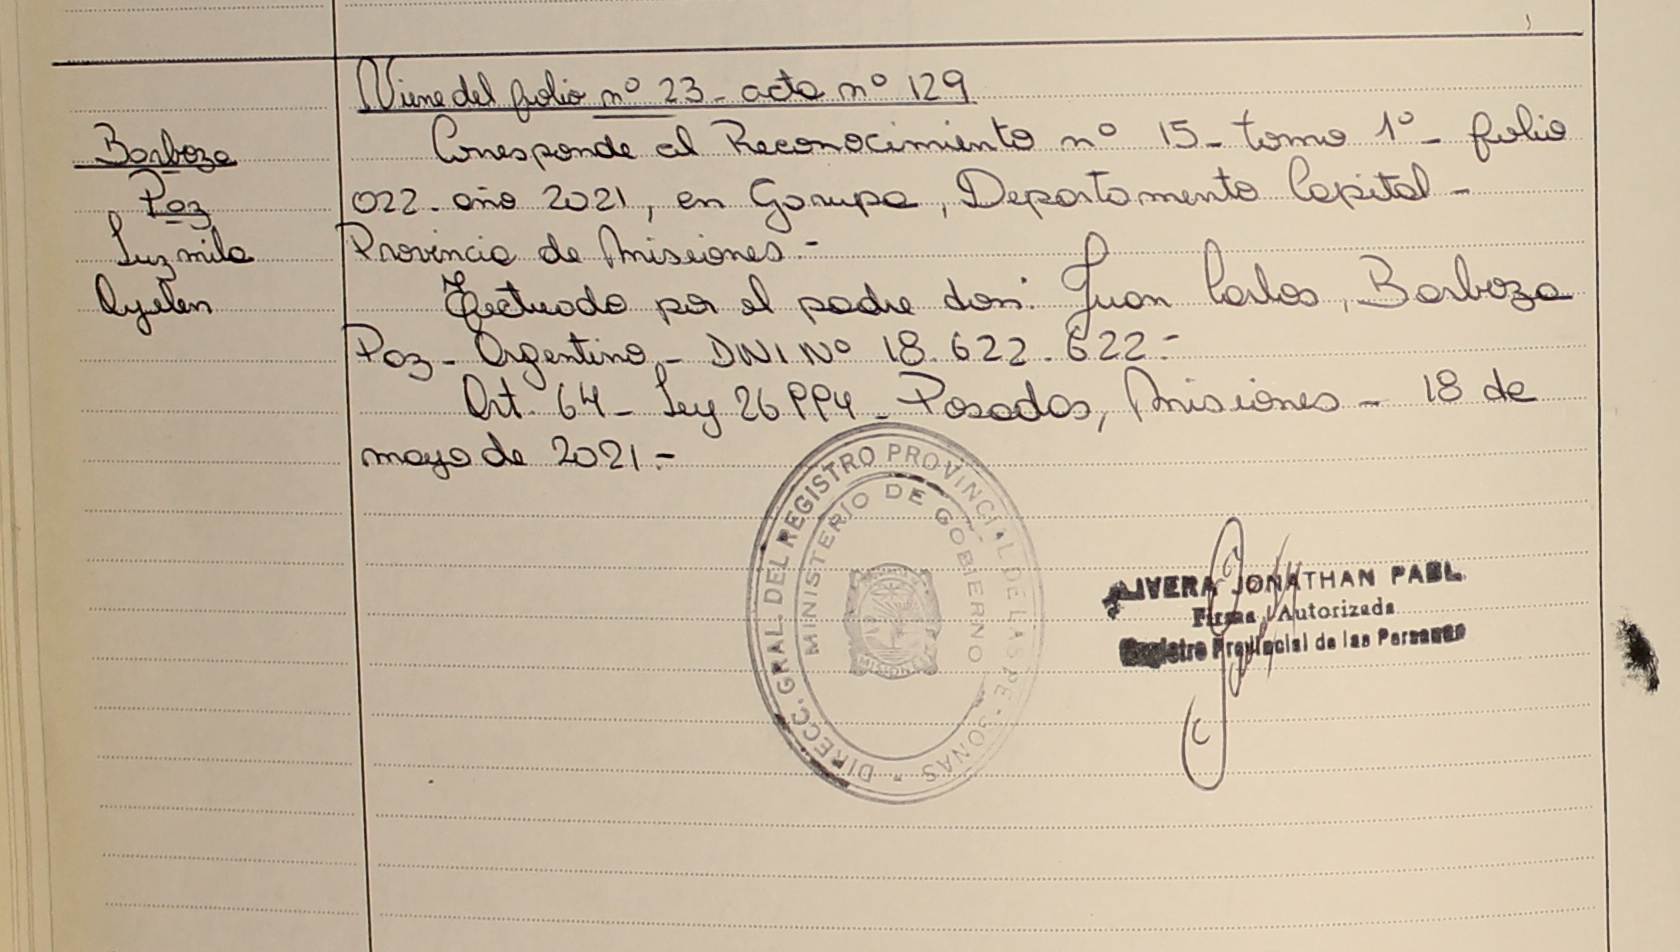 Viene del folio nº 23 - acta nº 129
Barboza
Paz
Luzmila
Ayelen
Corresponde al Reconocimiento nº 15 - tomo 1º - folio
022 - año 2021, en Garupa, Departamento Capital -
Provincia de Misiones.-
Efectuado por el padre don: Juan Carlos, Barboza
Paz - Argentino - DNI Nº 18.622.622.-
Art. 64 - Ley 26994 - Posadas, Misiones - 18 de
mayo de 2021.-
DIRECC. GRAL. DEL REGISTRO PROVINCIAL DE LAS PERSONAS
MINISTERIO DE GOBIERNO
MISIONES
JONATHAN
Firma Autorizada
Registro Provincial de las Personas